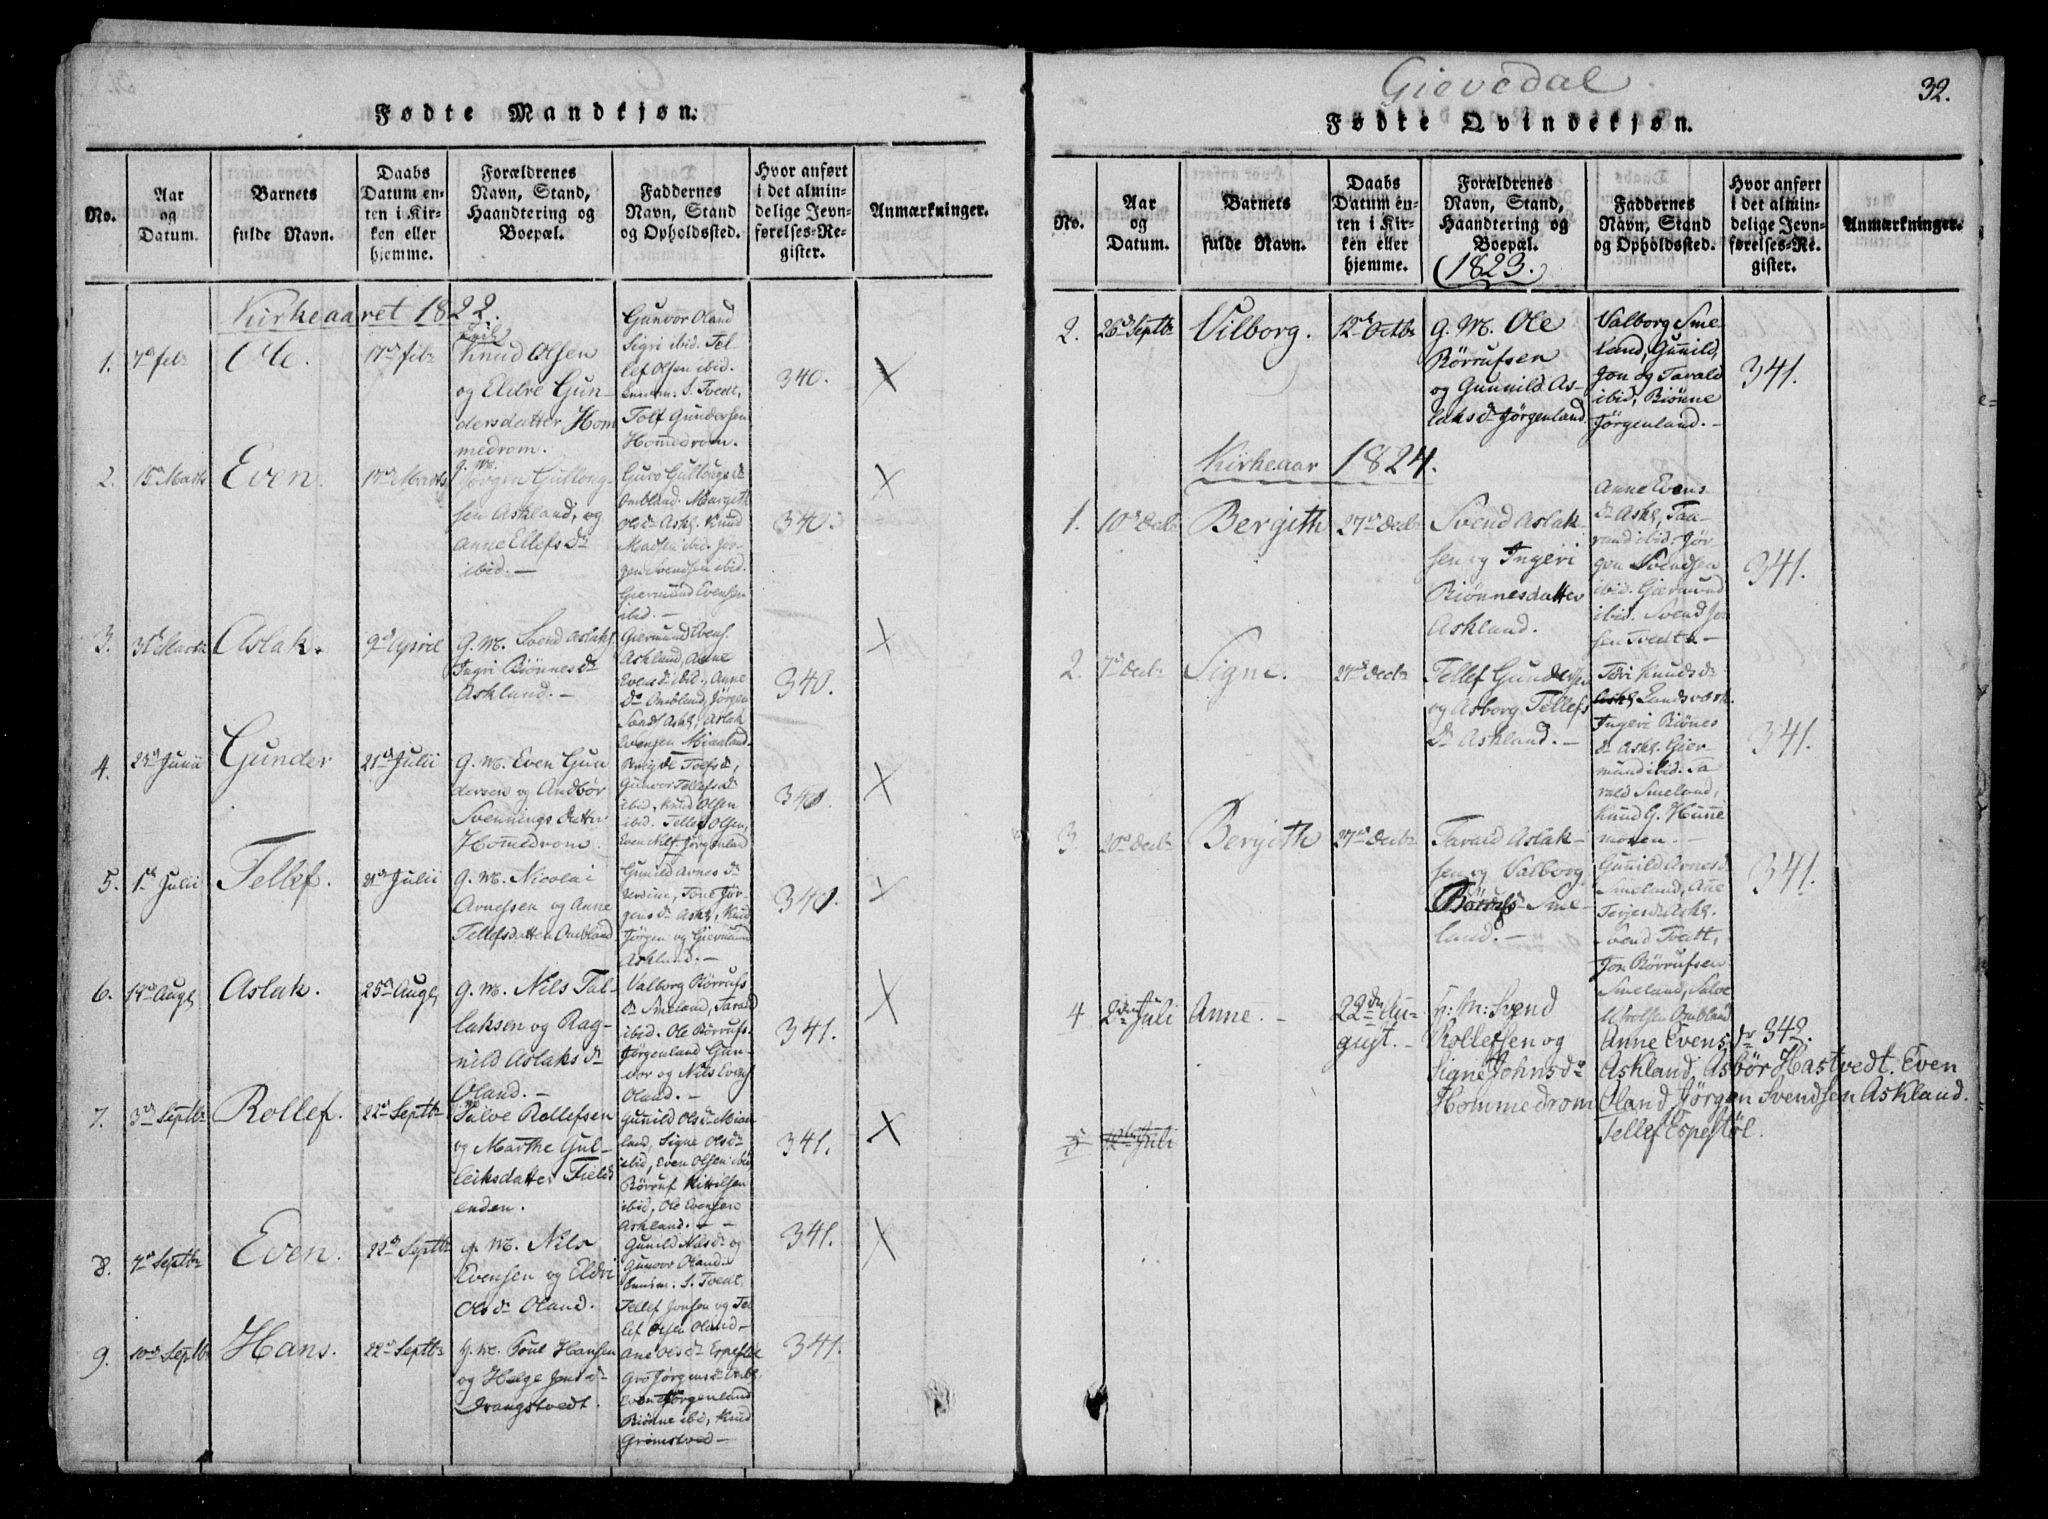 Fødte Mandkjøn.
No.
Aar
og
Datum.
Barnets
fulde Navn.
Daabs
Datum en-
ten i Kir-
ken eller
hjemme.
Forældrenes
Navn, Stand,
Haandtering og
Boepæl.
Faddernes
Navn, Stand
og Opholdssted.
Hvor anført
i det almin-
delige Jevn-
førelses-Re-
gister.
Anmærkninger.
Kirkeaaret 1822.
1.
7de feb
Ole.
17de feb
Knud Olsen
og Eldre Gun-
dersdatter Hom
medrom.
Gunvor Oland
Sigri ibid. Tel-
lef Olsen ibid.
S. Tvedt,
Tolf Gundersen
Homedrom.
340.
X
2.
15de Marts
Even.
17de Marts
g. M.
Jørgen Gullong-
sen Askland, og
Anne Ellefs dr
ibid. —
Guro Gullougs dr
Ombland. Margith
Ols dr Askl. Knud
Madsen ibid. Jør-
gen Svendsen ibid.
Giermund Evensen
ibid. —
340.
X
3.
31te Marts
Aslak.
9de April
g. M. Svend Aslaks.
Ingri Biønnes dr
Askland. —
Giermund Evens.
Askland, Anne
Evens dr ibid., Anne
dr Ombland, Jørgen
Askl, Aslak
Evensen Miaaland
340.
X
4.
Junii
Gunder
21de Julii
g. M. Even Gun
dersen og Andbør
Svennings datter
Homedrom.
Toefs dr,
Gunvor Tellefs dr
ibid, Knud Olsen
ibid. Tellef Olsen,
Even Nils. Jørgenland
340.
X
5.
1de Julii
Tellef.
21de Julii
g. M. Nicolai
Arnessen og Anne
Tellefsdatter Ombland
Gunild Arnes dr
Tone Jør-
gens dr Askl, Knud
Jørgen og Giermund
Askland. —
340.
X
6.
14de Aug
Aslak.
25de Aug
g. M. Nils Tal-
laksen og Rag-
nild Aslaks dr
Oland. —
Valborg Rørrufs
dr Smeland, Tarald
ibid. Ole Rørrufs.
Jørgenland Gun-
vor og Nils Evens.
Oland. —
341.
X
7.
3de Septbr
Rollef.
22de Septbr
Salve Rollefsen
og Marthe Gul-
leiksdatter Field
enden.
Gunild Ols dr Miaa
land, Signe Ols dr
ibid, Even Olsen ibid
Rørruf Kittilsen
ibid, Ole Evensen
Askland. —
341.
X
8.
7de Septbr
Even.
22de Septbr
g. M. Nils
Evensen og Eldri
Ols dr Oland.
Gunild Nils dr og
Gunvor Oland.
S. Tvedt,
Tellef Jonsen og Tel
lef Olsen Oland. —
341.
X
9.
10de Septbr
Hans.
22de Septbr
g. M. Poul Hansen
og Helge Jons dr
Vrangstvedt.
Ane Ols dr Espestøl
Gro Jørgens dr Ombl,
Even Jørgenland
Biønne ibid, Knud
Grimstved —
341.
Gievedal
32.
Fødte Qvindekjøn.
No.
Aar
og
Datum.
Barnets
fulde Navn.
Daabs
Datum en-
ten i Kir-
ken eller
hjemme.
Forældrenes
Navn, Stand,
Haandtering og
Boepæl.
(1823.)
Faddernes
Navn, Stand
og Opholdssted.
Hvor anført
i det almin-
delige Jevn-
førelses-Re-
gister.
Anmærkninger.
2.
26de Septbr
Vilborg.
12te Octbr
g. M. Ole
Rørrufsen
og Gunnild As-
laks dr Jørgenland
Valborg Sme-
land, Gunild,
Jon og Tarald
ibid, Biønne
Jørgenland. —
341.
Kirkeaar 1824.
1.
10de Decbr
Bergith
27de Decbr
Svend Aslak-
sen og Ingeri
Biønnesdatter
Askland.
Anne Evens
dr Askl, Taa-
rand ibid. Jør
gen Svendsen
ibid. Giermund
ibid. Svend Jon
sen Tvedt. —
341.
2.
7de Decbr
Signe.
27de Decbr
Tellef Gundersen
og Asborg Tellefs
dr Askland. —
Tori Knuds dr
Askl Landsværk.
Ingeri Biønes
dr Askl. Gier-
mund ibid. Ta-
rald Smeland,
Knud G. Hunne
moen. —
341.
3.
20de Decbr
Bergith
27de Decbr
Tarald Aslak-
sen og Valborg
Rørrufs dr Sme-
land. —
Gunild Arnes dr
Smeland, Ane
Terjes dr Askl.
Svend Tvedt,
Jon Rørrufsen
Smeland, Salve
Ombland
341.
4
2den Juli
Anne. —
22den Au-
gust. —
g: M: Svend
Rollefsen og
Signe Johns dr
Hommedrom
Anne Evens dr
Askland, Asbør Hastvedt. Even
Oland, Jørgen Svendsen Askland.
Tellef Espestøl.
342.
5
12te Juli